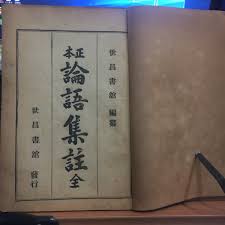 世昌書舘 編纂
正本
論語集註 全
世昌書舘 發行